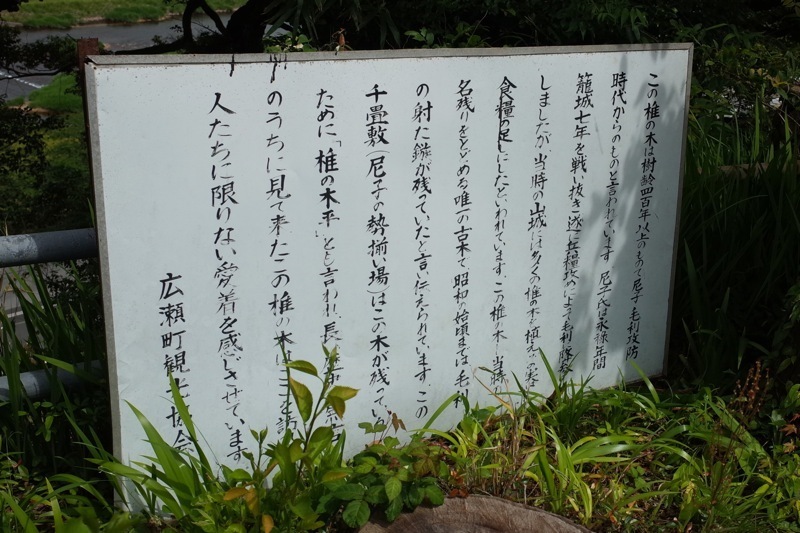 この椎の木は樹齢四百年以上のもので尼子 毛利攻防
時代からのものと言われています。尼子氏は永禄年間
籠城七年を戦い抜き遂に兵糧攻めによって毛利
しましたが当時の山城には多くの椎木を植え
食糧の足しにしたといわれています。この椎の木
名残りをとどめる唯一の古木で昭和の始頃までは毛利
の射た鏃が残っていたと言い伝えられています。この
千畳敷(尼子の勢揃い場)はこの木が残ってい
ために「椎の木平」とも言われ、長い
のうちに見て来たこの椎の木はここを訪
人たちに限りない愛着を感じさせています
広瀬町観光協会